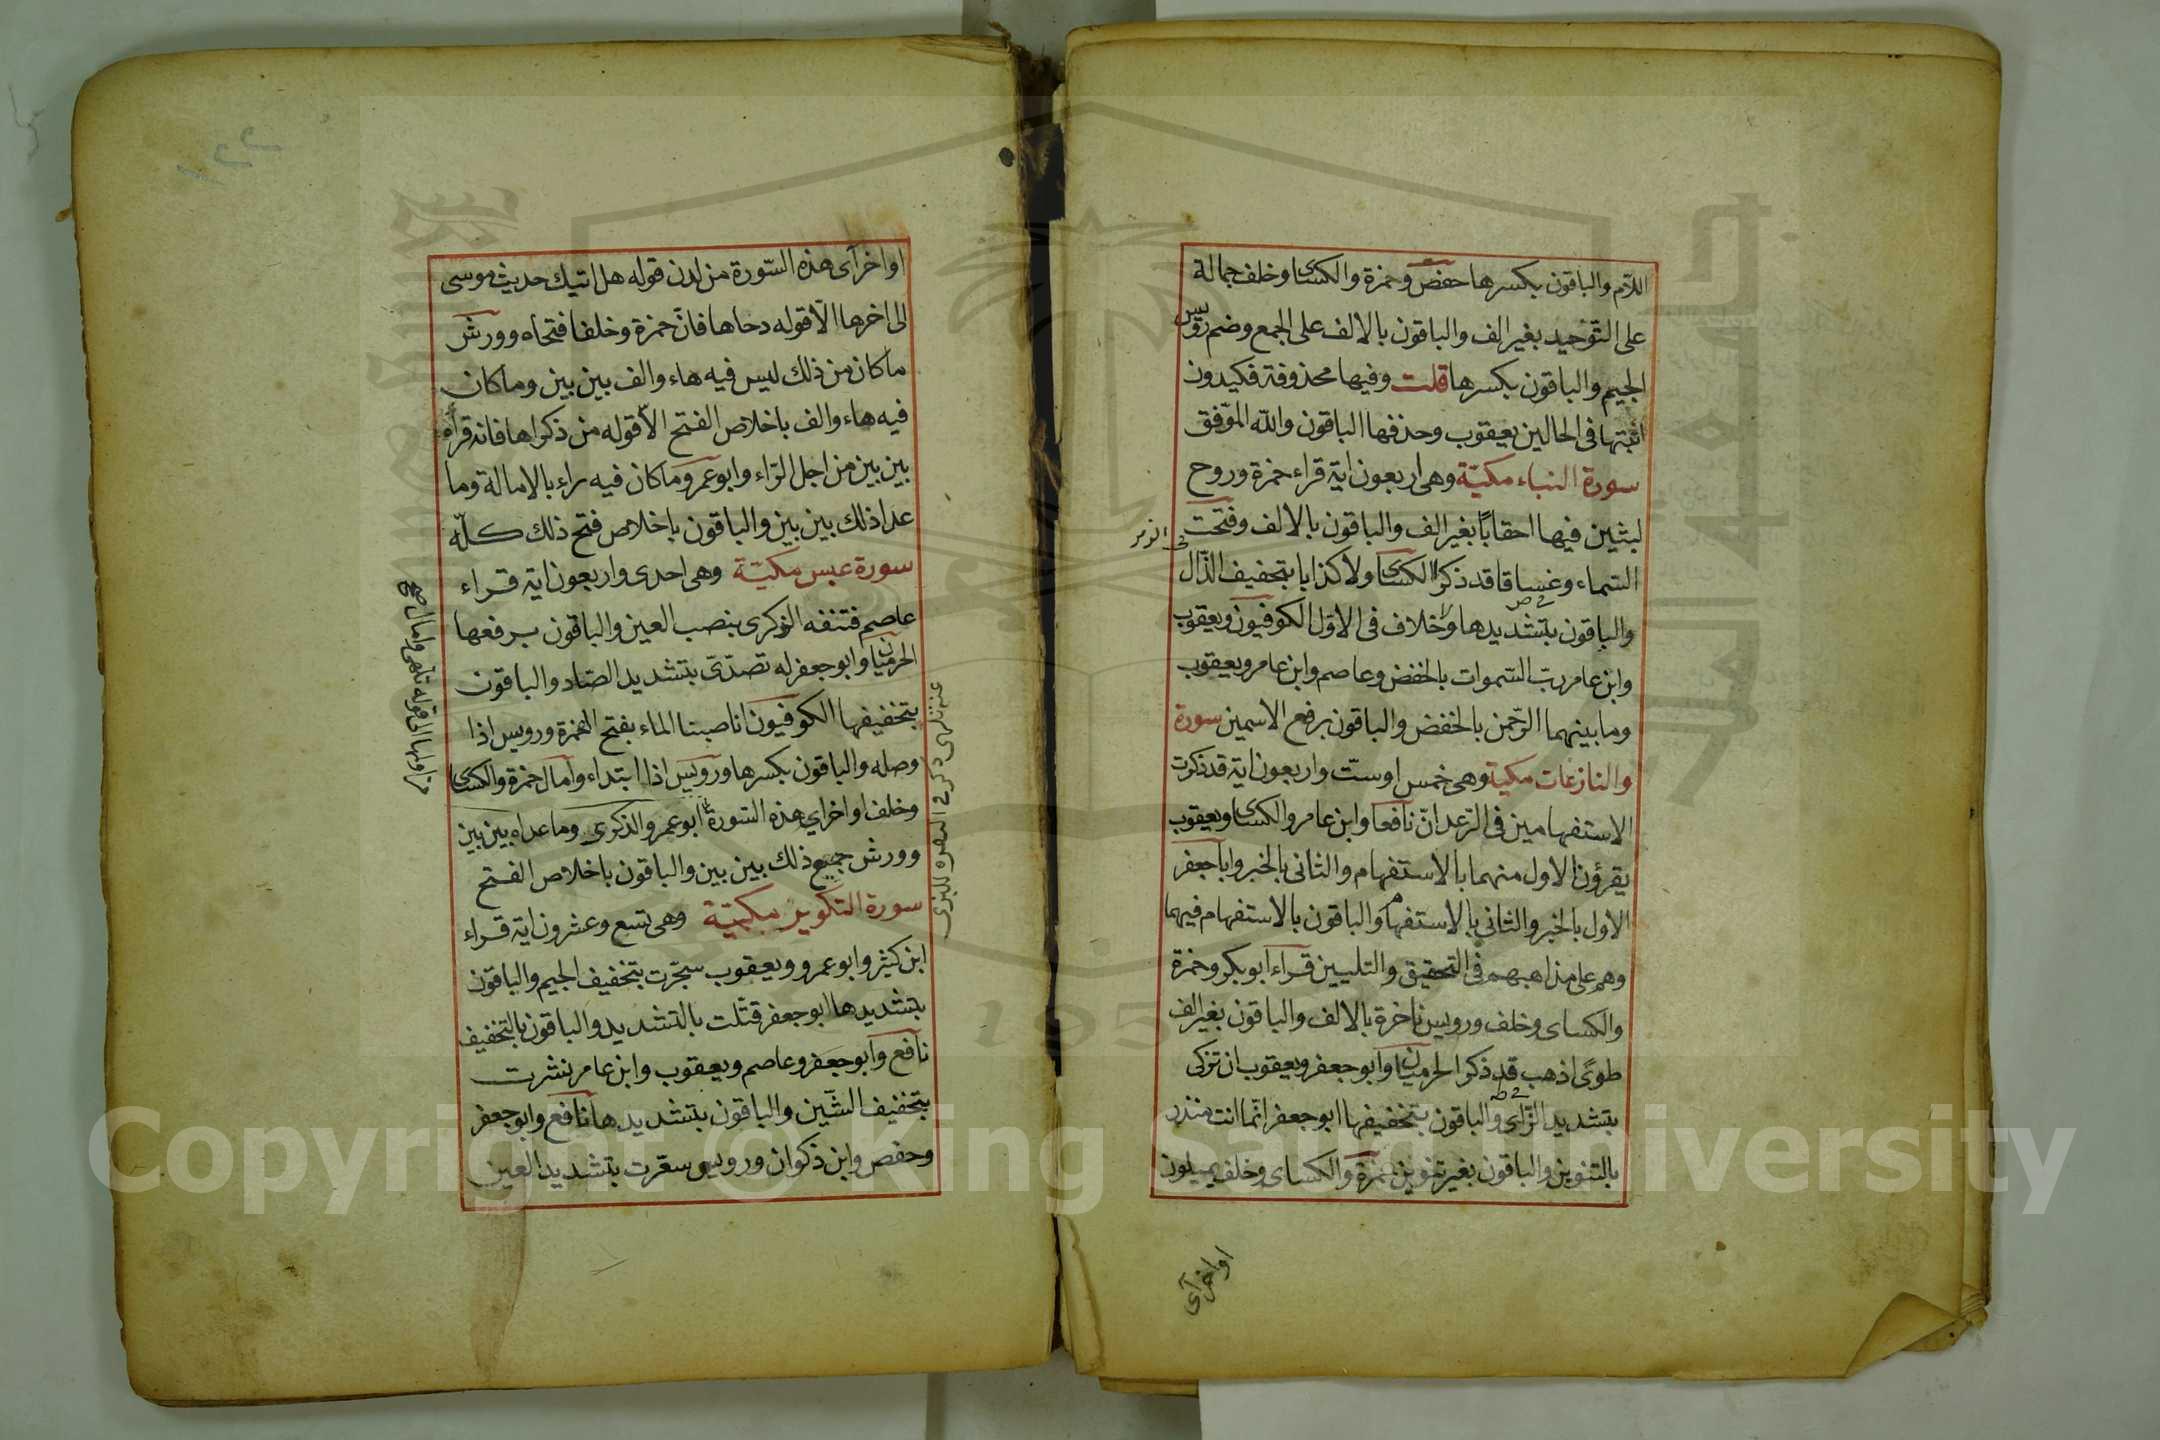 اللام والباقون بكسرها حفص وحمزة والكسائ وخلف جمالة
على التوحيد بغير الف والباقون بالالف على الجمع وضم رويس
الجيم والباقون بكسرها قلت وفيها محذوفة فكيدون
اثبتها فى الحالين يعقوب وحذفها الباقون والله الموفق
سورة النباء مكية وهى اربعون اية قراء حمزة وروح
لبثين فيها احقابًا بغير الف والباقون بالالف وفتحت
فى الزمر
السماء وغساقا قد ذكر الكسائ ولا كذابا بتخفيف الذال
والباقون بتشديدها ولا خلاف فى الاول الكوفيون ويعقوب
وابن عامر رب السموات بالخفض وعاصم وابن عامر ويعقوب
وما بينهما الرحمن بالخفض والباقون برفع الاسمين سورة
والنازعات مكية وهى خمس اوست واربعون اية قد ذكرت
الاستفهامين فى الرعد ان نافعا وابن عامر والكسائ ويعقوب
يقرؤن الاول منهما بالاستفهام والثانى بالخبر وابا جعفر
الاول بالخبر والثانى بالاستفهام والباقون بالاستفهام فيهما
وهم على مذاهبهم فى التحقيق والتليين قراء ابو بكر وحمزة
والكساى وخلف ورويس ناخرة بالالف والباقون بغير الف
طوًى اذهب قد ذكر الحرميان وابو جعفر ويعقوب ان تزكى
بتشديد الزاى والباقون بتخفيفها ابو جعفر انما انت منذر
بالتنوين والباقون بغير تنوين حمزة والكساى وخلف يميلون
اواخرآى
اواخرآى هذه السورة من لدن قوله هل اتيك حديث موسى
الى اخرها الا قوله دحاها فان حمزة وخلفا فتحاه وورش
ما كان من ذلك ليس فيه هاء والف بين بين وما كان
فيه هاء والف باخلاص الفتح الا قوله من ذكراها فانه قرأه
بين بين من اجل الراء وابو عمرو ما كان فيه راء بالامالة وما
عدا ذلك بين بين والباقون باخلاص فتح ذلك كله
سورة عبس مكية وهى احدى واربعون اية قراء
عاصم فتنفعه الذكرى بنصب العين والباقون برفعها
الحرميان وابو جعفر له تصدى بتشديد الصاد والباقون
بتخفيفها الكوفيون انا صببنا الماء بفتح الهمزة ورويس اذا
وصله والباقون بكسرها ورويس اذا ابتداء وامال حمزة والكسائ
وخلف اواخراي هذه السورة ابو عمرو الذكرى وما عداه بين بين
وورش جميع ذلك بين بين والباقون باخلاص الفتح
سورة التكوير مكية وهى تسع وعشرون اية قراء
ابن كثير وابو عمرو ويعقوب سجرت بتخفيف الجيم والباقون
بتشديدها ابو جعفر قتلت بالتشديد والباقون بالتخفيف
نافع وابو جعفر وعاصم ويعقوب وابن عامر نشرت
بتخفيف الشين والباقون بتشديدها نافع وابو جعفر
وحفص وابن ذكوان ورويس سعرت بتشديد العين
من اولها الى قوله تلهى وامال صح
عنه تلهى ذكر فى البقرة للبزى
Copyright © King Saud University